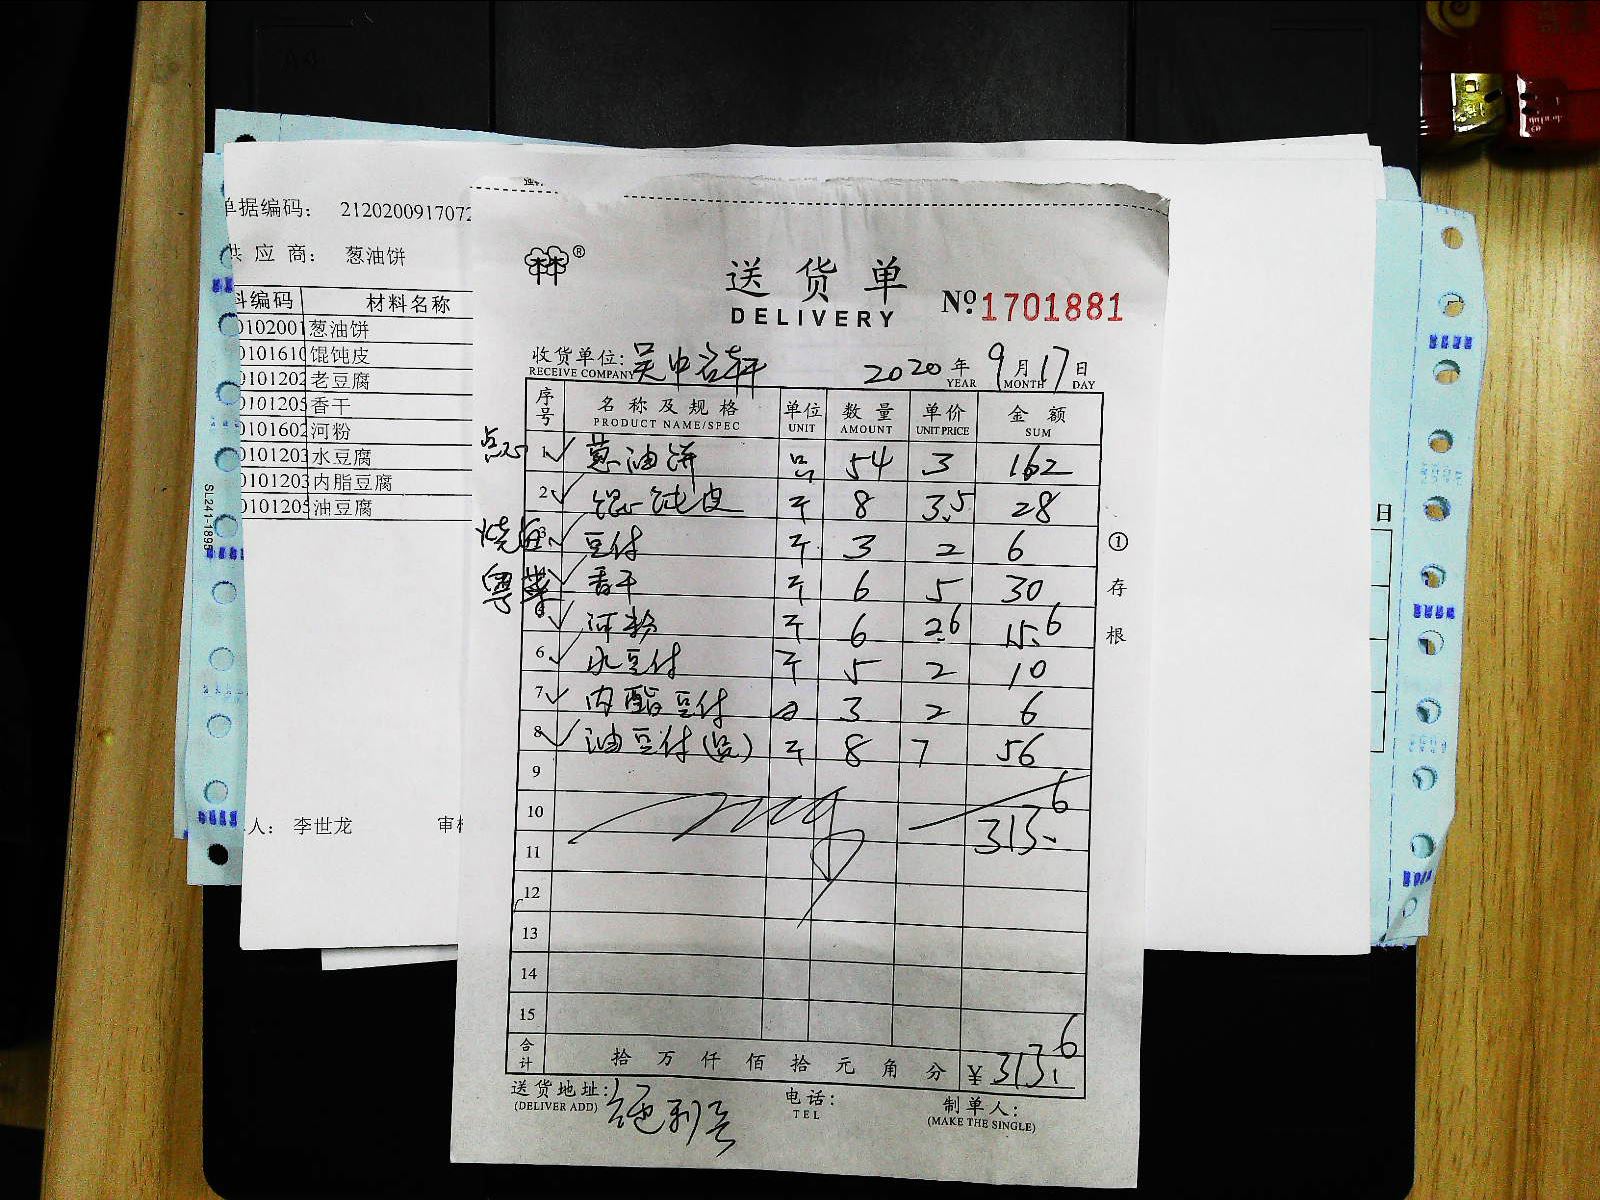 单据编码： 2120200917072
供 应 商： 葱油饼
料编码 材料名称
0102001 葱油饼
0101610 馄饨皮
0101202 老豆腐
0101205 香干
0101602 河粉
0101203 水豆腐
0101203 内脂豆腐
0101205 油豆腐
人： 李世龙 审核
SL241-1895
日
林林®
送货单
DELIVERY
No. 1701881
收货单位: 吴中名轩 2020 年 9 月 17 日
RECEIVE COMPANY YEAR MONTH DAY
序号 名称及规格 单位 数量 单价 金额
PRODUCT NAME/SPEC UNIT AMOUNT UNIT PRICE SUM
点心 1 葱油饼 54 3 162
2 馄饨皮 斤 8 3.5 28
豆付 斤 3 2 6
粤菜 香干 斤 6 5 30
河粉 斤 6 2.6 15.6
6 水豆付 斤 5 2 10
7 内酯豆付 3 2 6
8 油豆付 斤 8 7 56
9
10 313.6
11
12
13
14
15
合计 拾 万 仟 佰 拾 元 角 分 ¥ 313.6
①存根
送货地址:
(DELIVER ADD)
电话:
TEL
制单人:
(MAKE THE SINGLE)